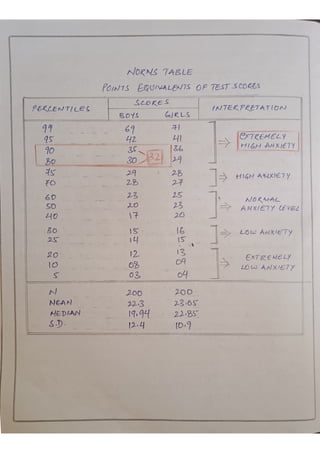 NORMS TABLE
POINTS EQUIVALENTS OF TEST SCORES
PERCENTILES SCORES INTERPRETATION
BOYS GIRLS
99 69 71
95 42 41 EXTREMELY
90 35 36 HIGH ANXIETY
32
80 30 29
75 29 28 HIGH ANXIETY
70 28 27
60 23 25 NORMAL
50 20 23 ANXIETY LEVEL
40 17 20
30 15 16 LOW ANXIETY
25 14 15
20 12 13 EXTREMELY
10 08 09 LOW ANXIETY
5 03 04
N 200 200
MEAN 22.3 23.05
MEDIAN 19.94 22.85
S.D. 12.4 10.9